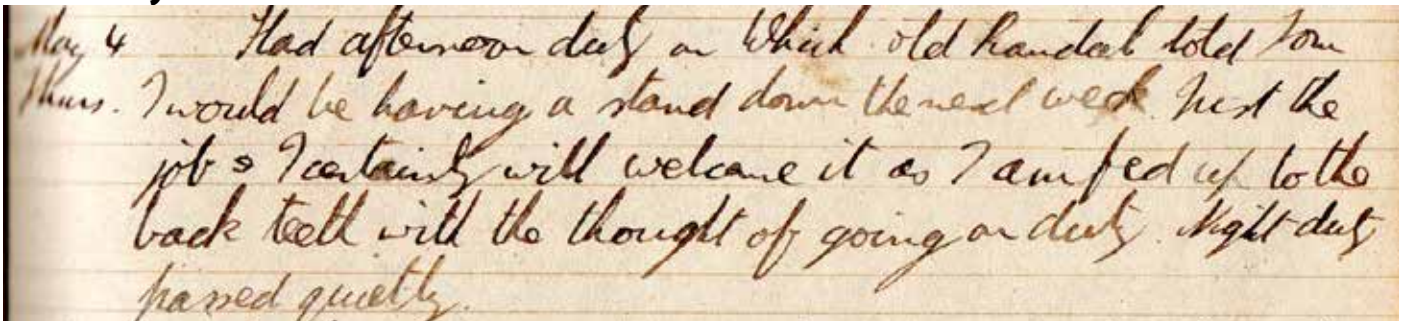 May 4 Had afternoon duty on which old Randal told Tom
Thurs. I would be having a stand down the next week. Just the
job & I certainly will welcome it as I am fed up to the
back teeth with the thought of going on duty. Night duty
passed quietly.